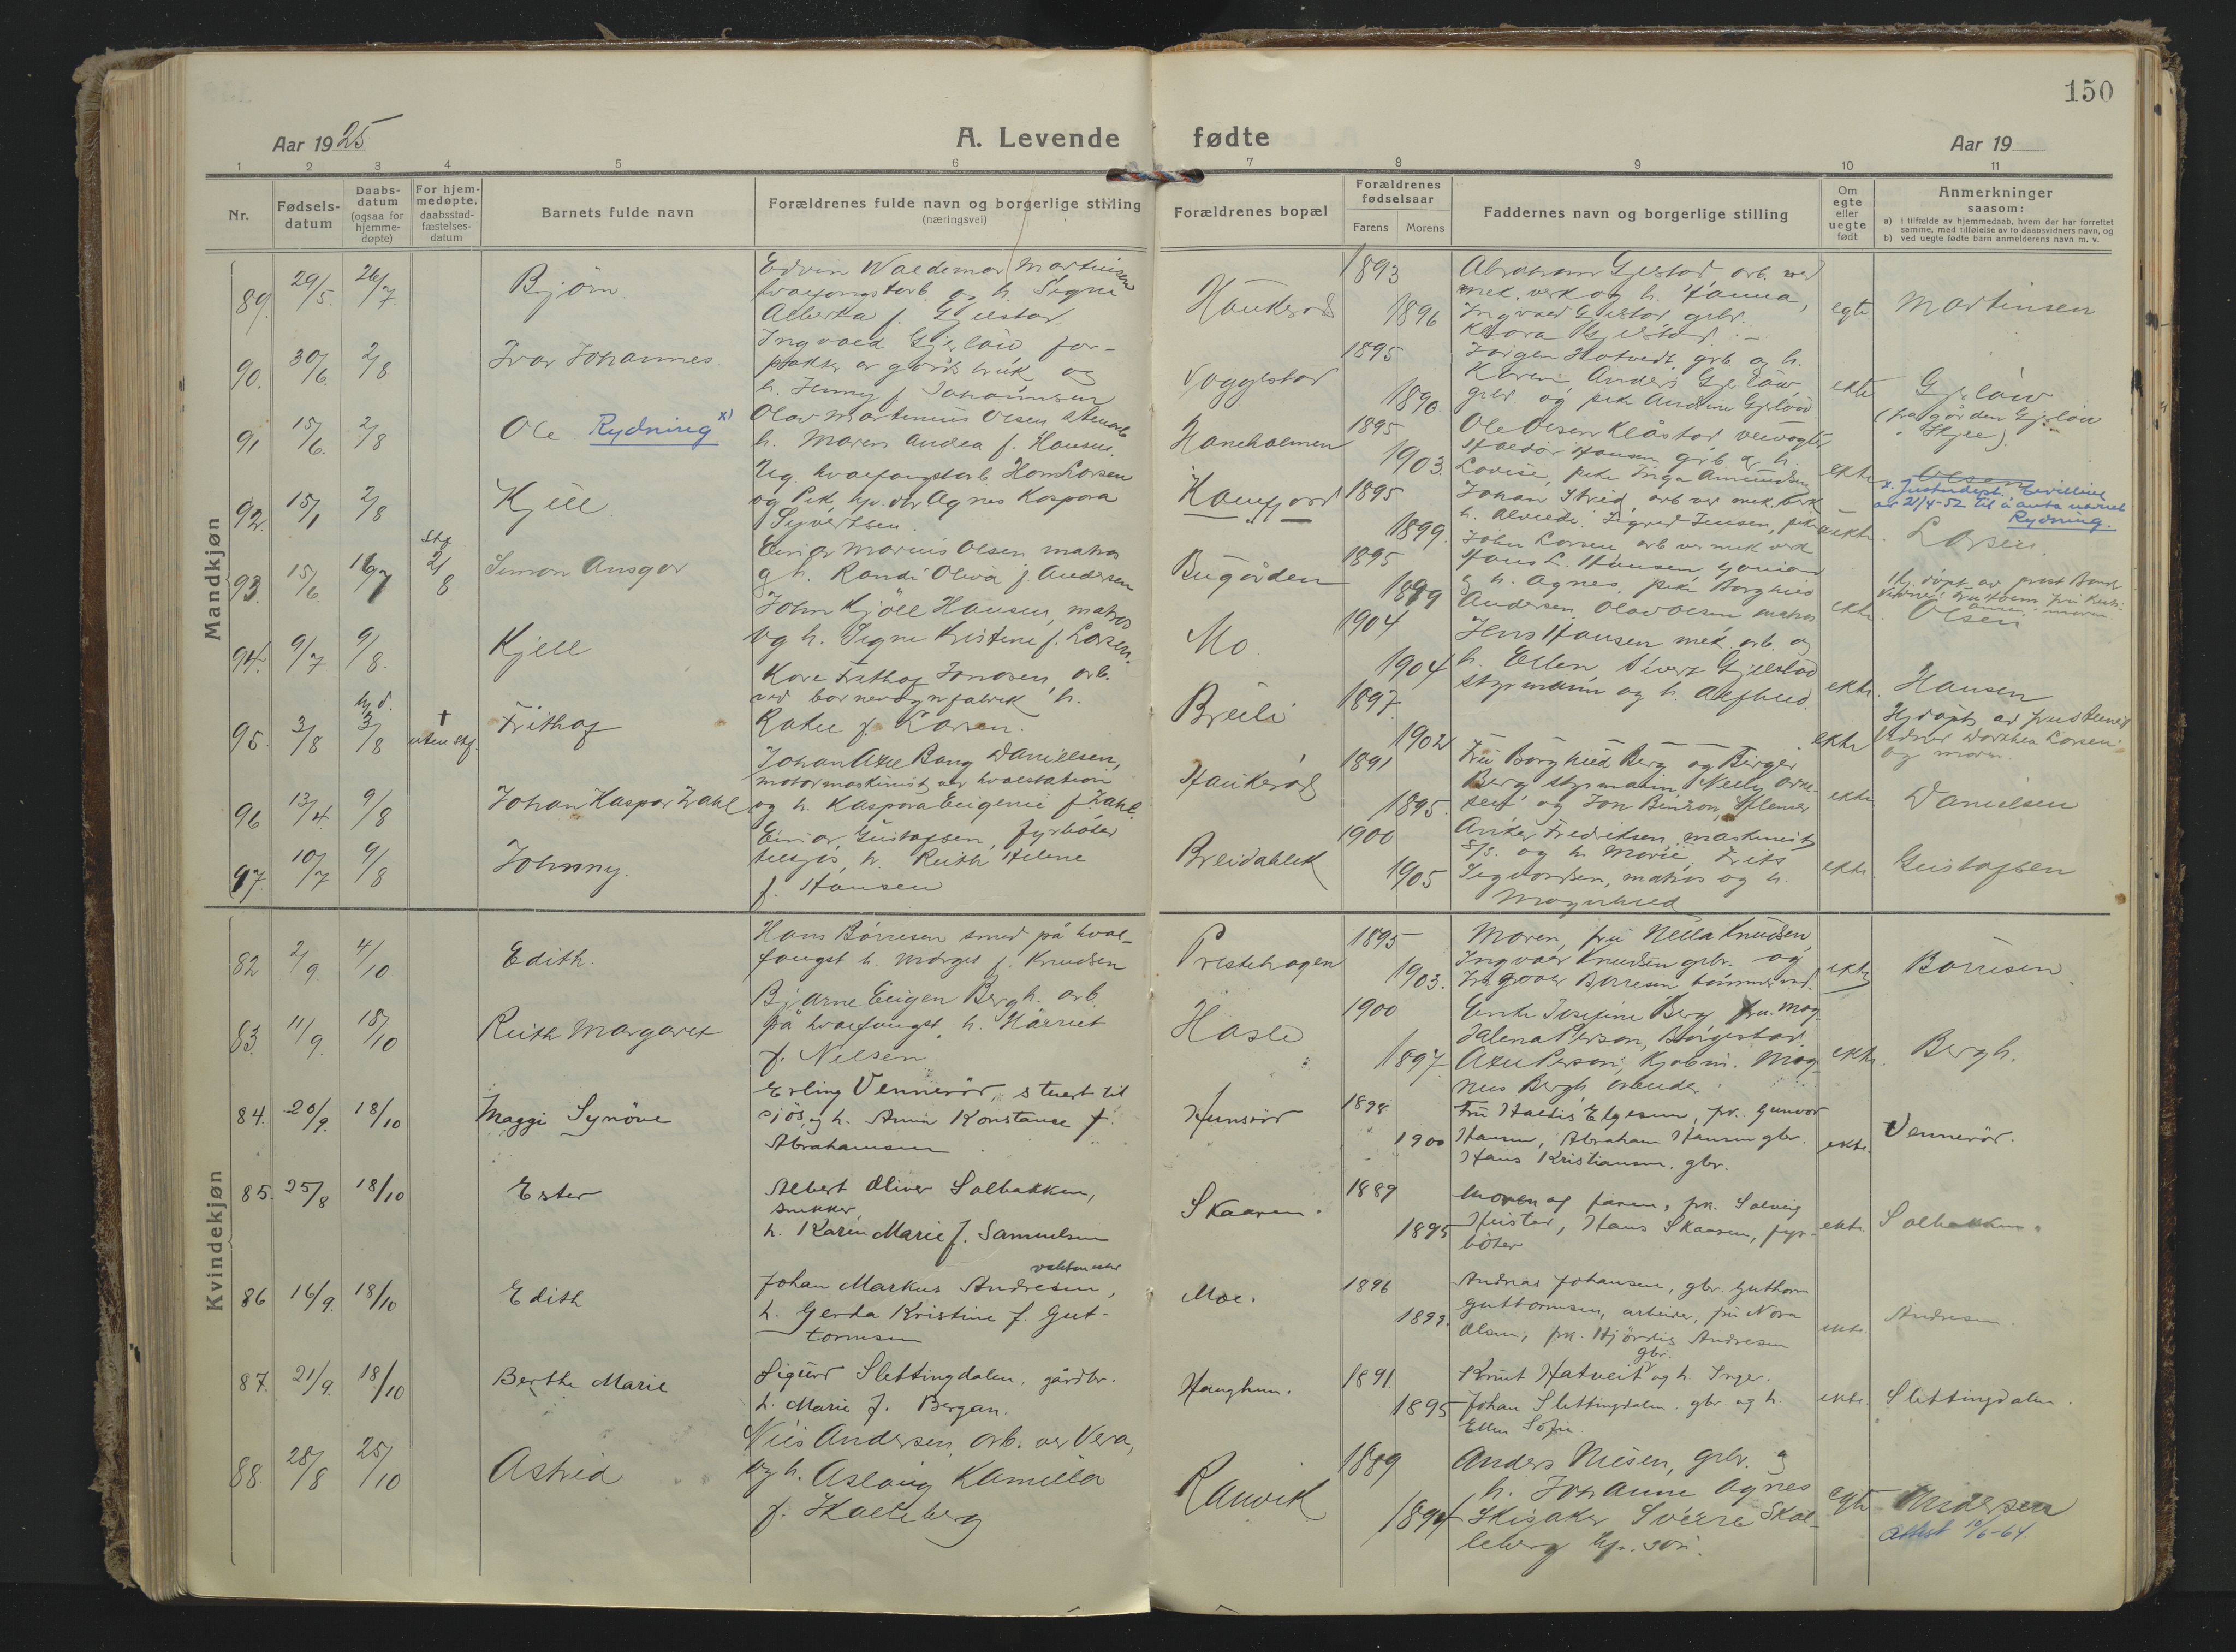 150
Aar 1925
A. Levende fødte
Aar 19
1 2 3 4 5 6 7 8 9 10 11
Nr.
Fødsels-
datum
Daabs-
datum
(ogsaa for
hjemme-
døpte)
For hjem-
medøpte.
daabsstad-
fæstelses-
datum
Barnets fulde navn
Forældrenes fulde navn og borgerlige stilling
(næringsvei)
Forældrenes bopæl
Forældrenes
fødselsaar
Farens Morens
Faddernes navn og borgerlige stilling
Om
egte
eller
uegte
født
Anmerkninger
saasom:
a) i tilfælde av hjemmedaab, hvem der har forrettet
samme, med tilføielse av to daabsvidners navn, og
b) ved uegte fødte barn anmelderens navn m. v.
Mandkjøn
89. 29/5. 26/7. Bjørn.
Edvin Waldemar Martinsen
hvalfangstarb. og h. Signe
Alberta f. Gjelstad.
Haukerød 1893 1896
Abraham Gjelstad arb. ved
mek. verk og h. Hanna,
Ingvald Gjelstad grbr.
Klara Gjelstad
egte Martinsen
90. 30/6. 2/8 Ivar Johannes.
Ingvald Gjerløw for-
pakter av gårdsbruk og
h. Jenny f. Johannsen
Voggestad 1895 1890.
Jørgen Hotvedt, grb. og h.
Karen, Anders Gjerløw
grbr. og pike Andrine Gjerløw
ekte Gjerløw
(fra gården Gjerløw
i Skjee).
91 15/6. 2/8 Ole. Rydning x)
Olav Martinius Olsen stenarb.
h. Maren Andrea f. Hansen.
Haneholmen 1895 1903.
Ole Olsen Klåstad veivogter
Haldor Hansen grb. og h.
Lovise, pike Inga Amundsen
ekte Olsen
x. Justisdept. bevilling
av 21/4-52 til å anta navnet
Rydning.
92. 15/1 2/8 Kjell
Ug. hvalfangstarb. Hans Larsen
og Pike Agnes Kaspara
Syvertsen.
Kamfjord 1895 1899.
Johan Strid, arb. ved mek. verk
h. Alvilde. Sigrid Jensen, pike
John Larsen arb ved mek verk
uekte. Larsen.
93. 15/6 16/7 Stf. 2/8 Simon Ansgar
Einar Marius Olsen matros
og h. Randi Oliva f. Andersen
Bugården 1895 1899
Hans L. Hansen
og h. Agnes, pike Borghild
Andersen, Olav Olsen matros
ekte. Olsen
94. 9/7 9/8. Kjell
John Kjøll Hansen, matros
og h. Signe Kristine f. Larsen.
Mo. 1904 1904
Jens Hansen mek. arb. og
h. Ellen, Sivert Gjelstad
styrmann og h. Alfhild.
ekte. Hansen
95. 3/8 hj.d. 3/8 † uten stf. Frithof
Kåre Frithof Jonasen, arb.
ved barnevognfabrik h.
Rakel f. Larsen.
Breili 1897. 1902
ekte
og moren.
96 13/4. 9/8 Johan Kaspar Dahl
Johan Axel Bang Danielsen,
motormaskinist ved hvalstation
og h. Kaspara Eugenie f. Dahl.
Haukerød 1891 1895.
Fru Borghild Berg og Birger
Berg styrmann, Nelly
og Jon
ekte Danielsen
97. 10/7 9/8 Johnny.
Einar Gustafsen, fyrbøter
tilsjøs, h. Ruth Helene
f. Hansen
Breidablik 1900 1905
Anker Fredriksen, maskinist
og h. Marie. Frits
Sigvardsen, matros og h.
Magnhild
ekte. Gustafsen
Kvindekjøn
82 2/9. 4/10. Edith.
Hans Børresen smed på hval-
fangst h. Margit f. Knudsen
Prestehagen 1895 1903.
Moren, fru Nella Knudsen
Ingvald Knudsen grbr. og
Ingvald Børresen tømmermd.
ekte Børresen.
83. 11/9. 18/10 Ruth Margaret
Bjarne Eugen Bergh. arb.
på hvalfangst, h. Harriet
f. Nilsen
Hasle 1900 1897
Enke Josefine Berg fru. Mag-
dalena Person, Borgestad.
Axel Person, Kjøbm. Mag-
nus Bergh arbeider
ekte. Bergh.
84. 20/9. 18/10 Maggi Synöve
Erling Vennerød, stuert til
sjøs, og h. Anna Konstanse f.
Abrahamsen
Hunsrød 1898 1900
Fru Haldis Elgesem, frk. Gunvor
Hansen, Abraham Hansen gbr.
Hans Kristiansen, gbr.
ekte. Vennerød.
85. 25/8 18/10 Ester
Albert Oliver Solbakken,
snekker,
h. Karen Marie f. Samuelsen
Skaaren. 1889 1895
Moren og faren, frk. Solveig
Heister, Hans Skaaren, fyr-
bøter
ekte. Solbakken.
86 16/9. 18/10 Edith
vaktmester
Johan Markus Andresen,
h. Gerda Kristine f. Gut-
tormsen
Moe. 1896 1899.
Andreas Johansen, gbr. Guthorm
Guttormsen, arbeider, fru Nora
Olsen, frk. Hjørdis Andresen
ekte. Andresen.
87. 21/9. 18/10 Berthe Marie
Sigurd Slettingdalen, gårdbr.
h. Marie f. Bergan.
Haughem. 1891. 1895
gbr.
Knut Hatveit og h. Inger.
Johan Slettingdalen. gbr. og h.
Ellen Sofie
ekte. Slettingdalen.
88. 28/8 25/10 Astrid
Nils Andersen, arb. ved Vera,
og h. Aslaug Kamilla
f. Skalleberg
Ranvik 1889 1894
Anders Nilsen, grbr. og
h. Johanne Agnes
Skisaker, Sverre Skal-
leberg hj. søn.
egte Andersen
Attest 10/6-64.